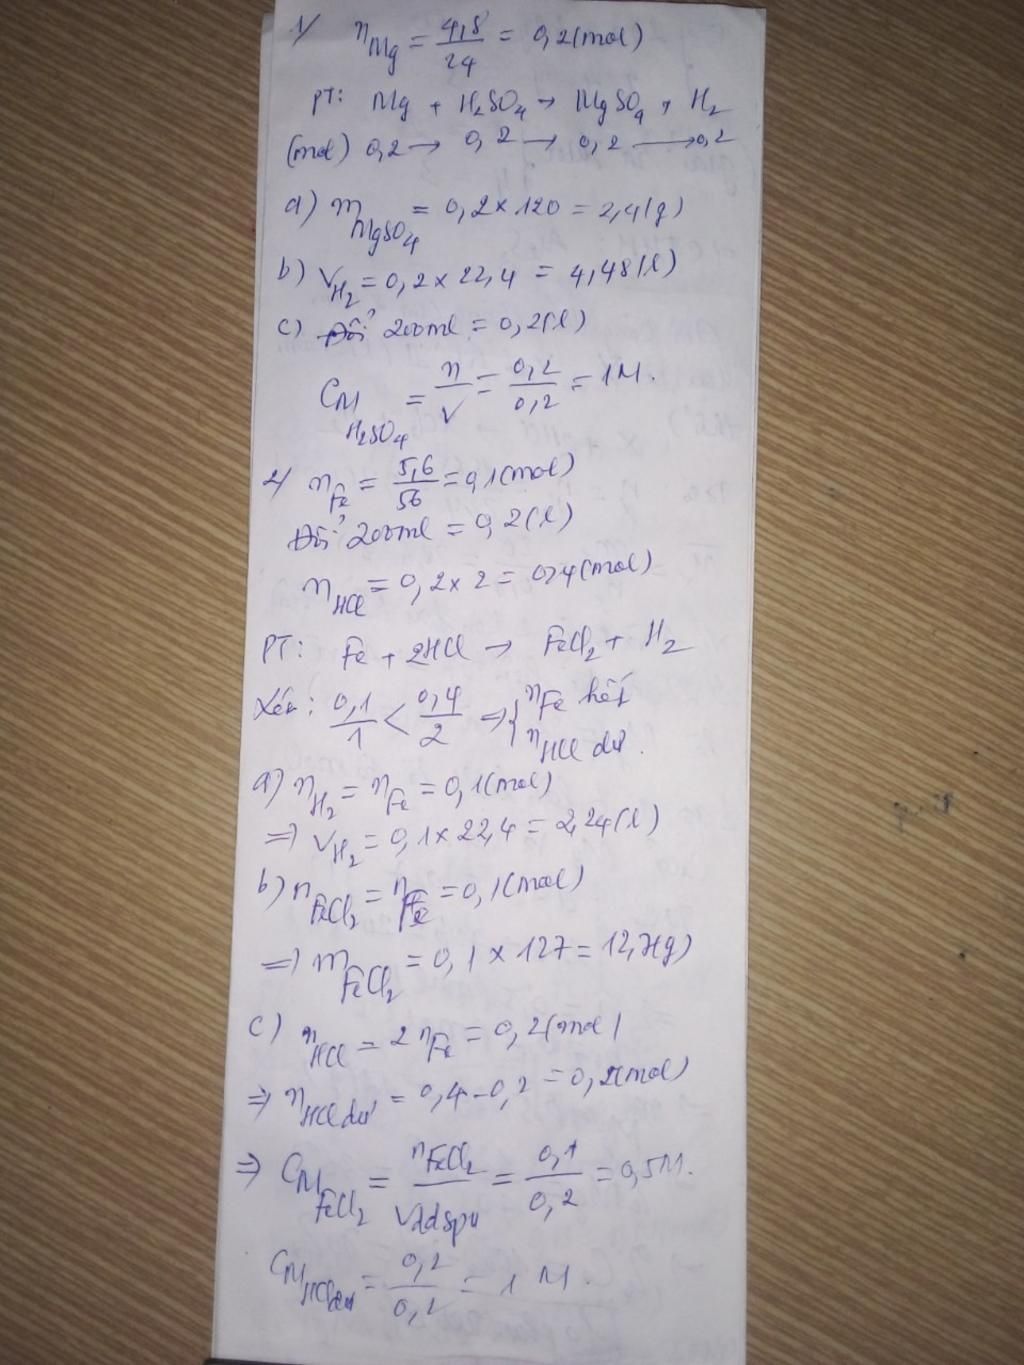 1/ nMg = 4,8/24 = 0,2 (mol)
PT: Mg + H2SO4 → MgSO4 + H2
(mol) 0,2 → 0,2 → 0,2 → 0,2
a) mMgSO4 = 0,2 x 120 = 2,4 (g)
b) VH2 = 0,2 x 22,4 = 4,48 (l)
c) Đổi 200ml = 0,2 (l)
CM H2SO4 = n/V = 0,2/0,2 = 1M.
2/ nFe = 5,6/56 = 0,1 (mol)
Đổi 200ml = 0,2 (l)
nHCl = 0,2 x 2 = 0,4 (mol)
PT: Fe + 2HCl → FeCl2 + H2
Xét: 0,1/1 < 0,4/2 => { nFe hết
nHCl dư.
a) nH2 = nFe = 0,1 (mol)
=> VH2 = 0,1 x 22,4 = 2,24 (l)
b) nFeCl2 = nFe = 0,1 (mol)
=> mFeCl2 = 0,1 x 127 = 12,7 (g)
c) nHCl = 2nFe = 0,2 (mol)
=> nHCl dư = 0,4 - 0,2 = 0,2 (mol)
=> CM FeCl2 = nFeCl2/Vddspu = 0,1/0,2 = 0,5M.
CM HCl dư = 0,2/0,2 = 1 M.